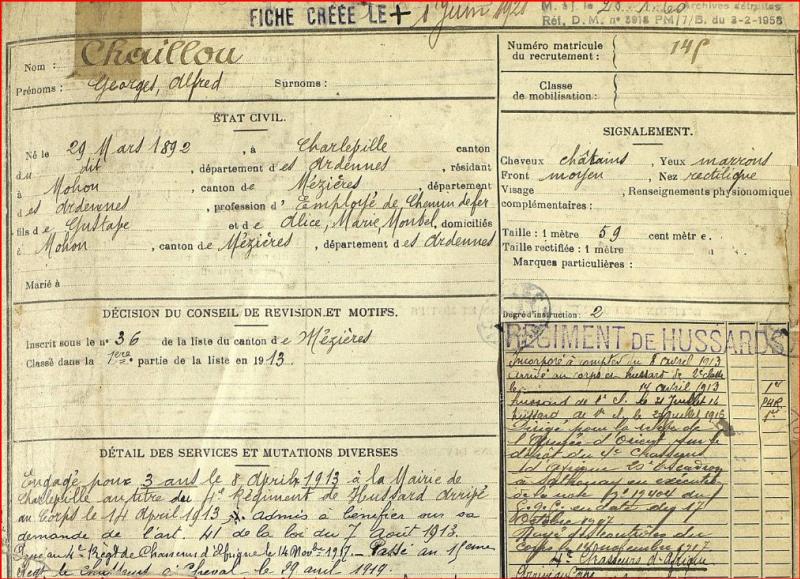 FICHE CRÉÉE LE + 1 Juin 1921
Rél. D. M. n° 3918 PM/7/B. du 3-2-1958
Nom : Chaillou
Prénoms : Georges, Alfred Surnoms :
ÉTAT CIVIL.
Né le 29 Mars 1892, à Charleville canton
du dit, département des Ardennes, résidant
à Mohon, canton de Mézières, département
des Ardennes, profession d'Employé de Chemin de fer
fils de Gustave et de Alice, Marie, domiciliés
à Mohon, canton de Mézières, département des Ardennes
Marié à
DÉCISION DU CONSEIL DE REVISION ET MOTIFS.
Inscrit sous le n° 36 de la liste du canton de Mézières
Classé dans la 1ère partie de la liste en 1913.
DÉTAIL DES SERVICES ET MUTATIONS DIVERSES
Engagé pour 3 ans le 8 April 1913 à la Mairie de
Charleville au titre du 4e Régiment de Hussard arrivé
au Corps le 14 April 1913. Admis à bénéfier sur sa
demande de l'art. 41 de la loi du 7 Août 1913.
Passé au 4e Regt de Chasseurs d'Afrique le 14 Novbre 1917. Passé au 15eme
Regt de Chasseurs à Cheval le 29 avril 1919.
Numéro matricule
du recrutement :
Classe
de mobilisation :
SIGNALEMENT.
Cheveux châtains, Yeux marrons
Front moyen, Nez rectiligne
Visage, Renseignements physionomiques
complémentaires :
Taille : 1 mètre 59 cent mètre.
Taille rectifiée : 1 mètre
Marques particulières :
Degré d'instruction : 2
REGIMENT DE HUSSARDS
Incorporé à compter du 8 avril 1913
Arrivé au corps et hussard de 2e classe
le 14 avril 1913
hussard de 1e
hussard de
Dirigé pour le
l'Armée d'Orient sur le
dépôt du 4e Chasseurs
d'Afrique
à Sathonay en exécution
de la note n° 12404 du
en date du 17
Octobre 1917
Rayé des contrôles du
corps novembre 1917
4e Chasseurs d'Afrique